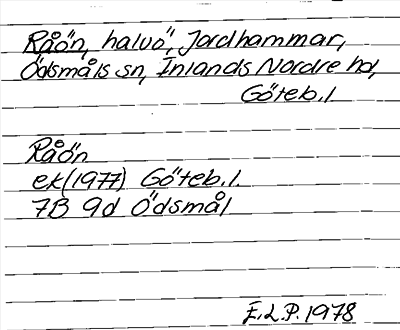 Råön, halvö, Jordhammar,
Ödsmåls sn, Inlands Nordre hd,
Göteb. l
Råön
ek (1977) Göteb. l.
7B 9d Ödsmål
E.L.P. 1978